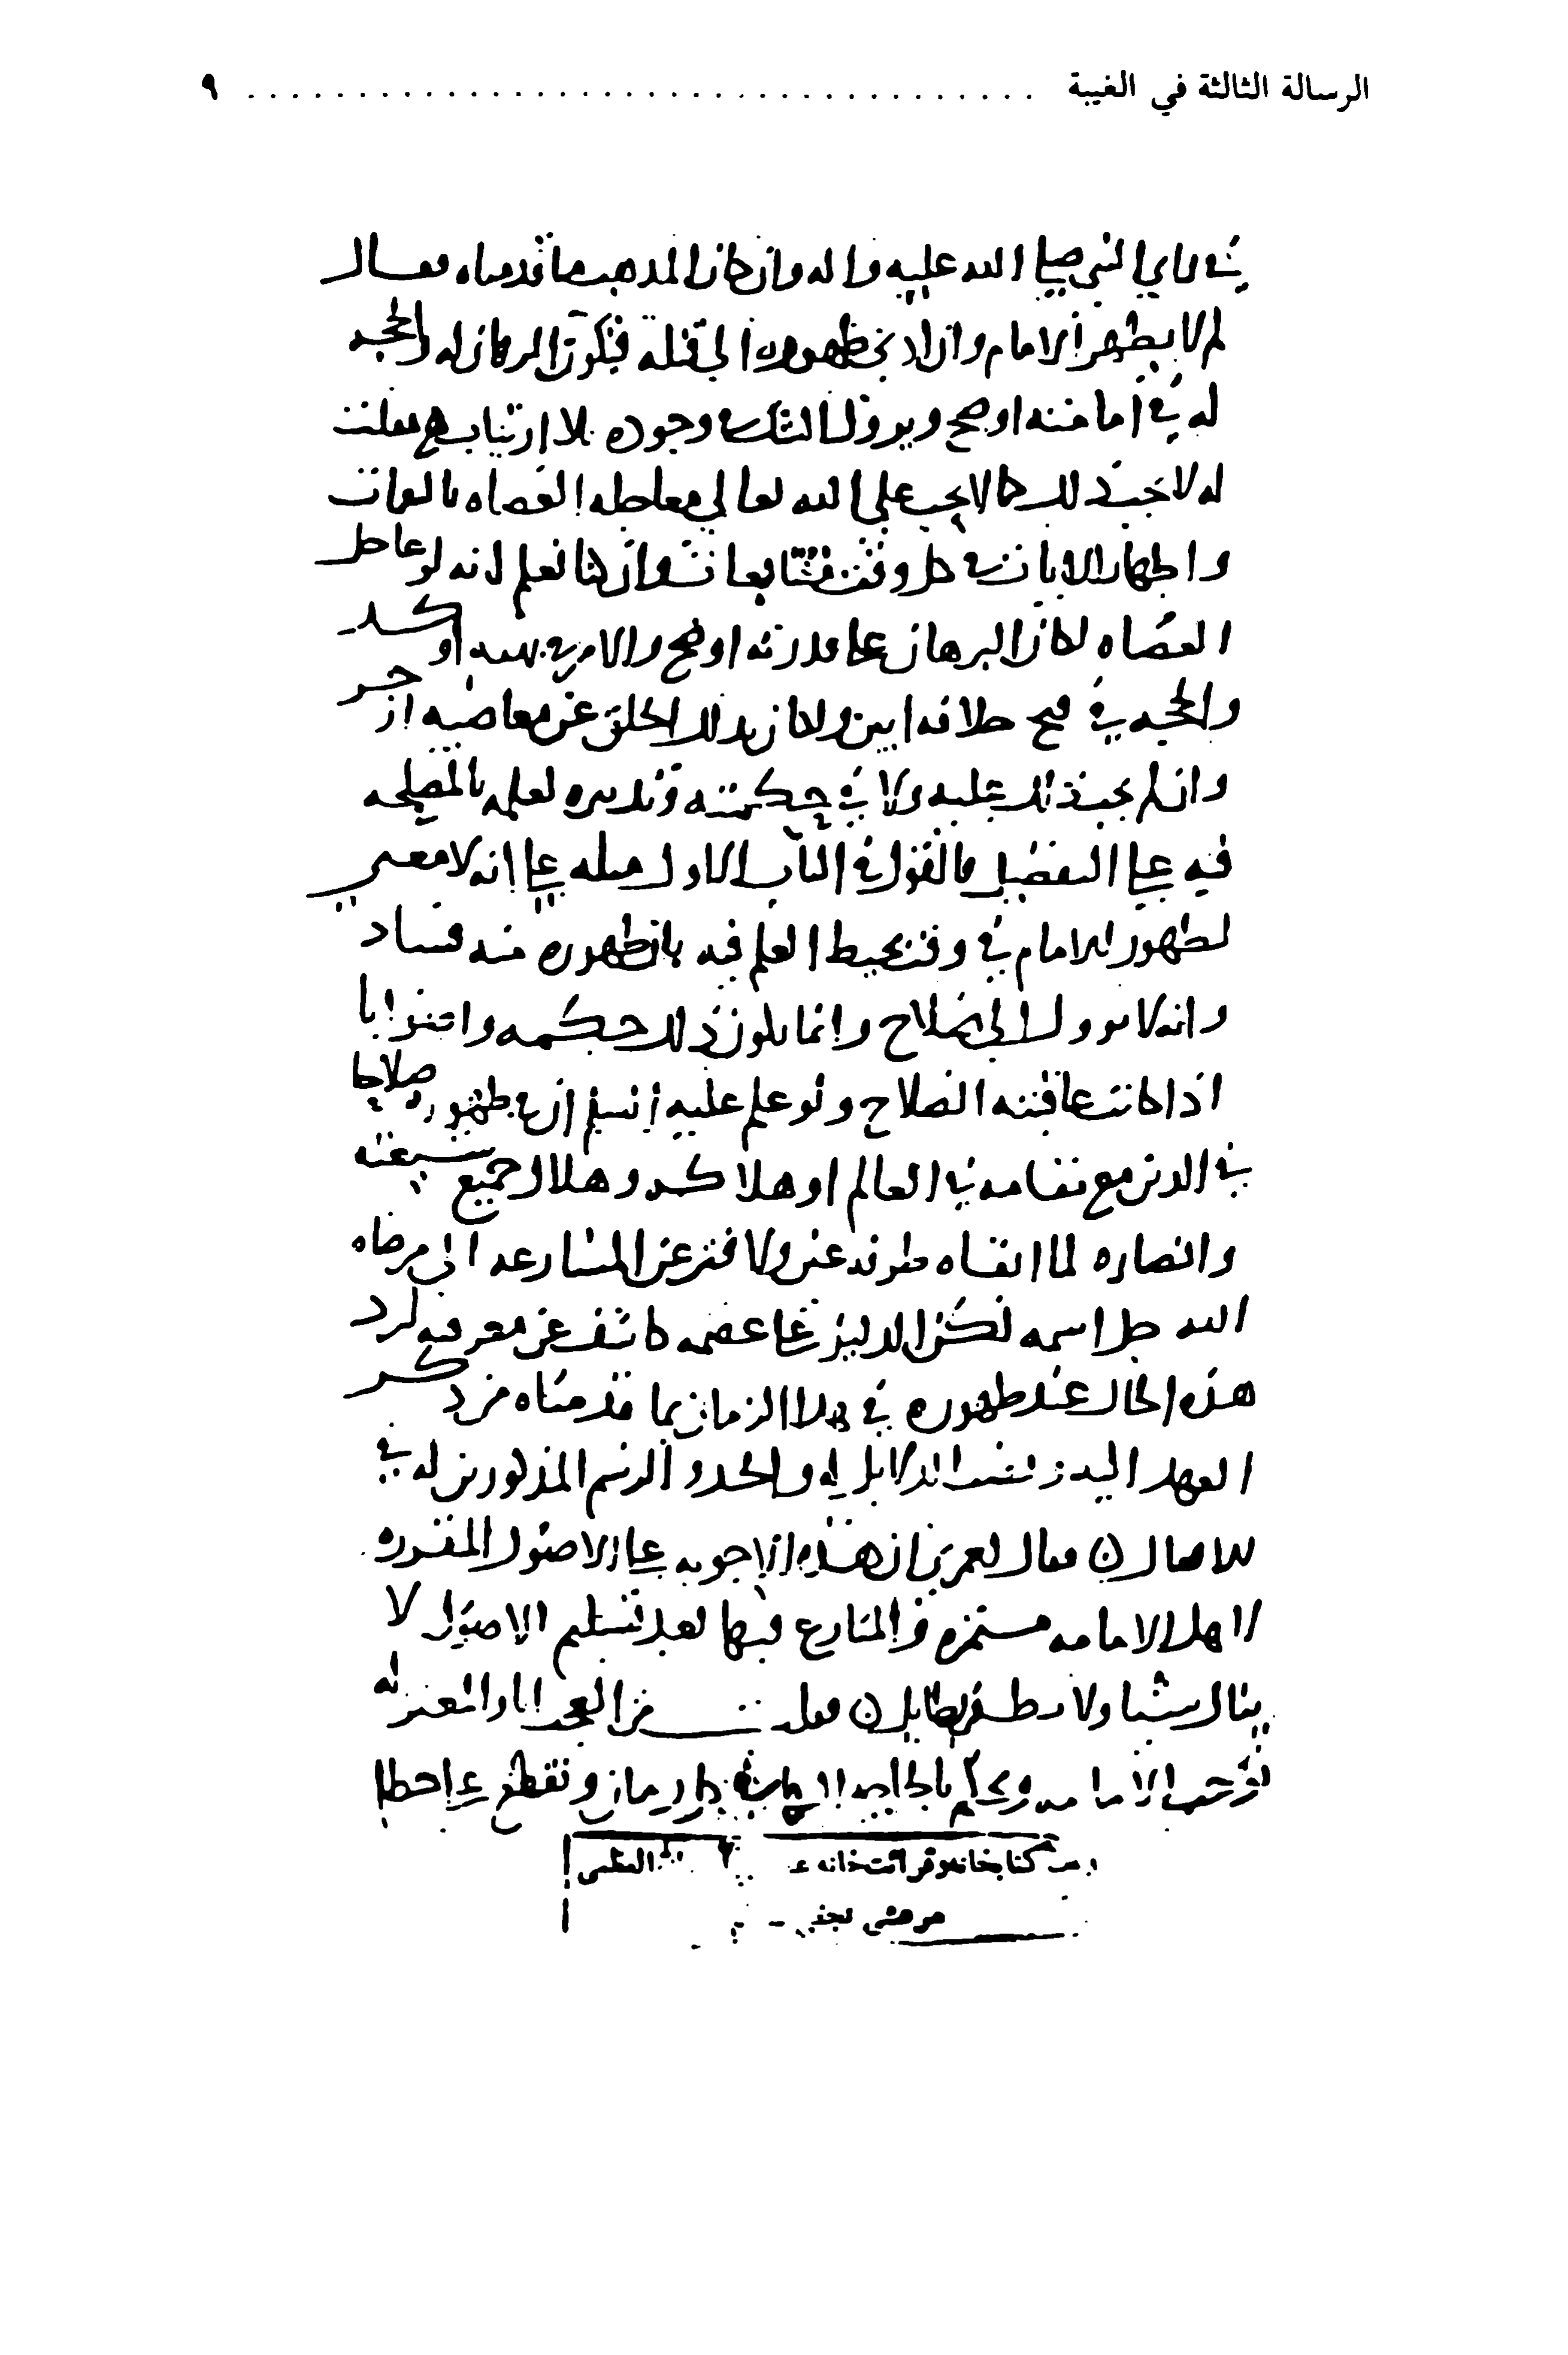 الرسالة الثالثة في الغيبة ........................................ ٩
النبي صلى الله عليه واله وان كان المذهب ما قدمناه فقال
لم لا يظهر الامام وان ادى ظهوره الى قتله فيكون البرهان له والحجه
له في امامته اوضح ويزول الشك في وجوده بلا ارتياب فقلت
انه لا يجب ذلك كما لا يجب على الله تعالى معاجله العصاه بالنقمات
واظهار الايات في كل وقت متتابعا وان كنا نعلم انه لو عاجل
العصاه لكان البرهان على قدرته اوضح والامر في نهيه اوكد
والحجه في قبح خلافه ابين ولكان بذلك الخلق عن معاصيه ازجر
وان لم يجب ذلك عليه ولا في حكمته وتدبيره لعلمه بالمصلحه
فيه على التفصيل فالقول في الباب الاول مثله على انه لا معنى
لظهور الامام في وقت يحيط العلم فيه بان ظهوره منه فساد
وانه لا يوول الى اصلاح وانما يكون ذلك حكمه وصوابا
اذا كانت عاقبته الصلاح ولو علم عليه السلم ان في ظهوره صلاحا
في الدين مع مقامه في العالم او هلاكه وهلاك جميع شيعته
وانصاره لما ابقاه طرفه عين ولا فتر عن المسارعه الى مرضاه
الله جل اسمه لكن الدليل على عصمه كاشف عن معرفته لرد
هذه الحال عند ظهوره في هذا الزمان بما قدمناه من ذكر
العهد اليه ونصب الدلايل له والحد والرسم المذكورين له في
الافعال فقال لعمري ان هذه الاجوبه على الاصول المقرره
لاهل الامامه مستمره والمنازع فيها بعد تسليم الاصول لا
ينال شيا ولا يظفر بطايل فقلت من العجب انا والمعتزله
نوجب الامامه ونحكم بالحاجه اليها في كل زمان ونقطع على خطا
كتابخانه و قرائت خانه العظمى
مرعشى نجفى